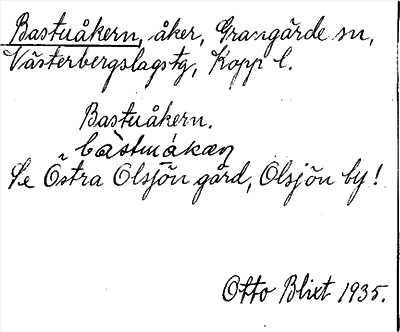 Bastuåkern, åker, Grangärde sn,
Västerbergslags tg, Kopp l.
Bastuåkern.
Se Östra Olsjön gård, Olsjön by!
Otto Blixt 1935.